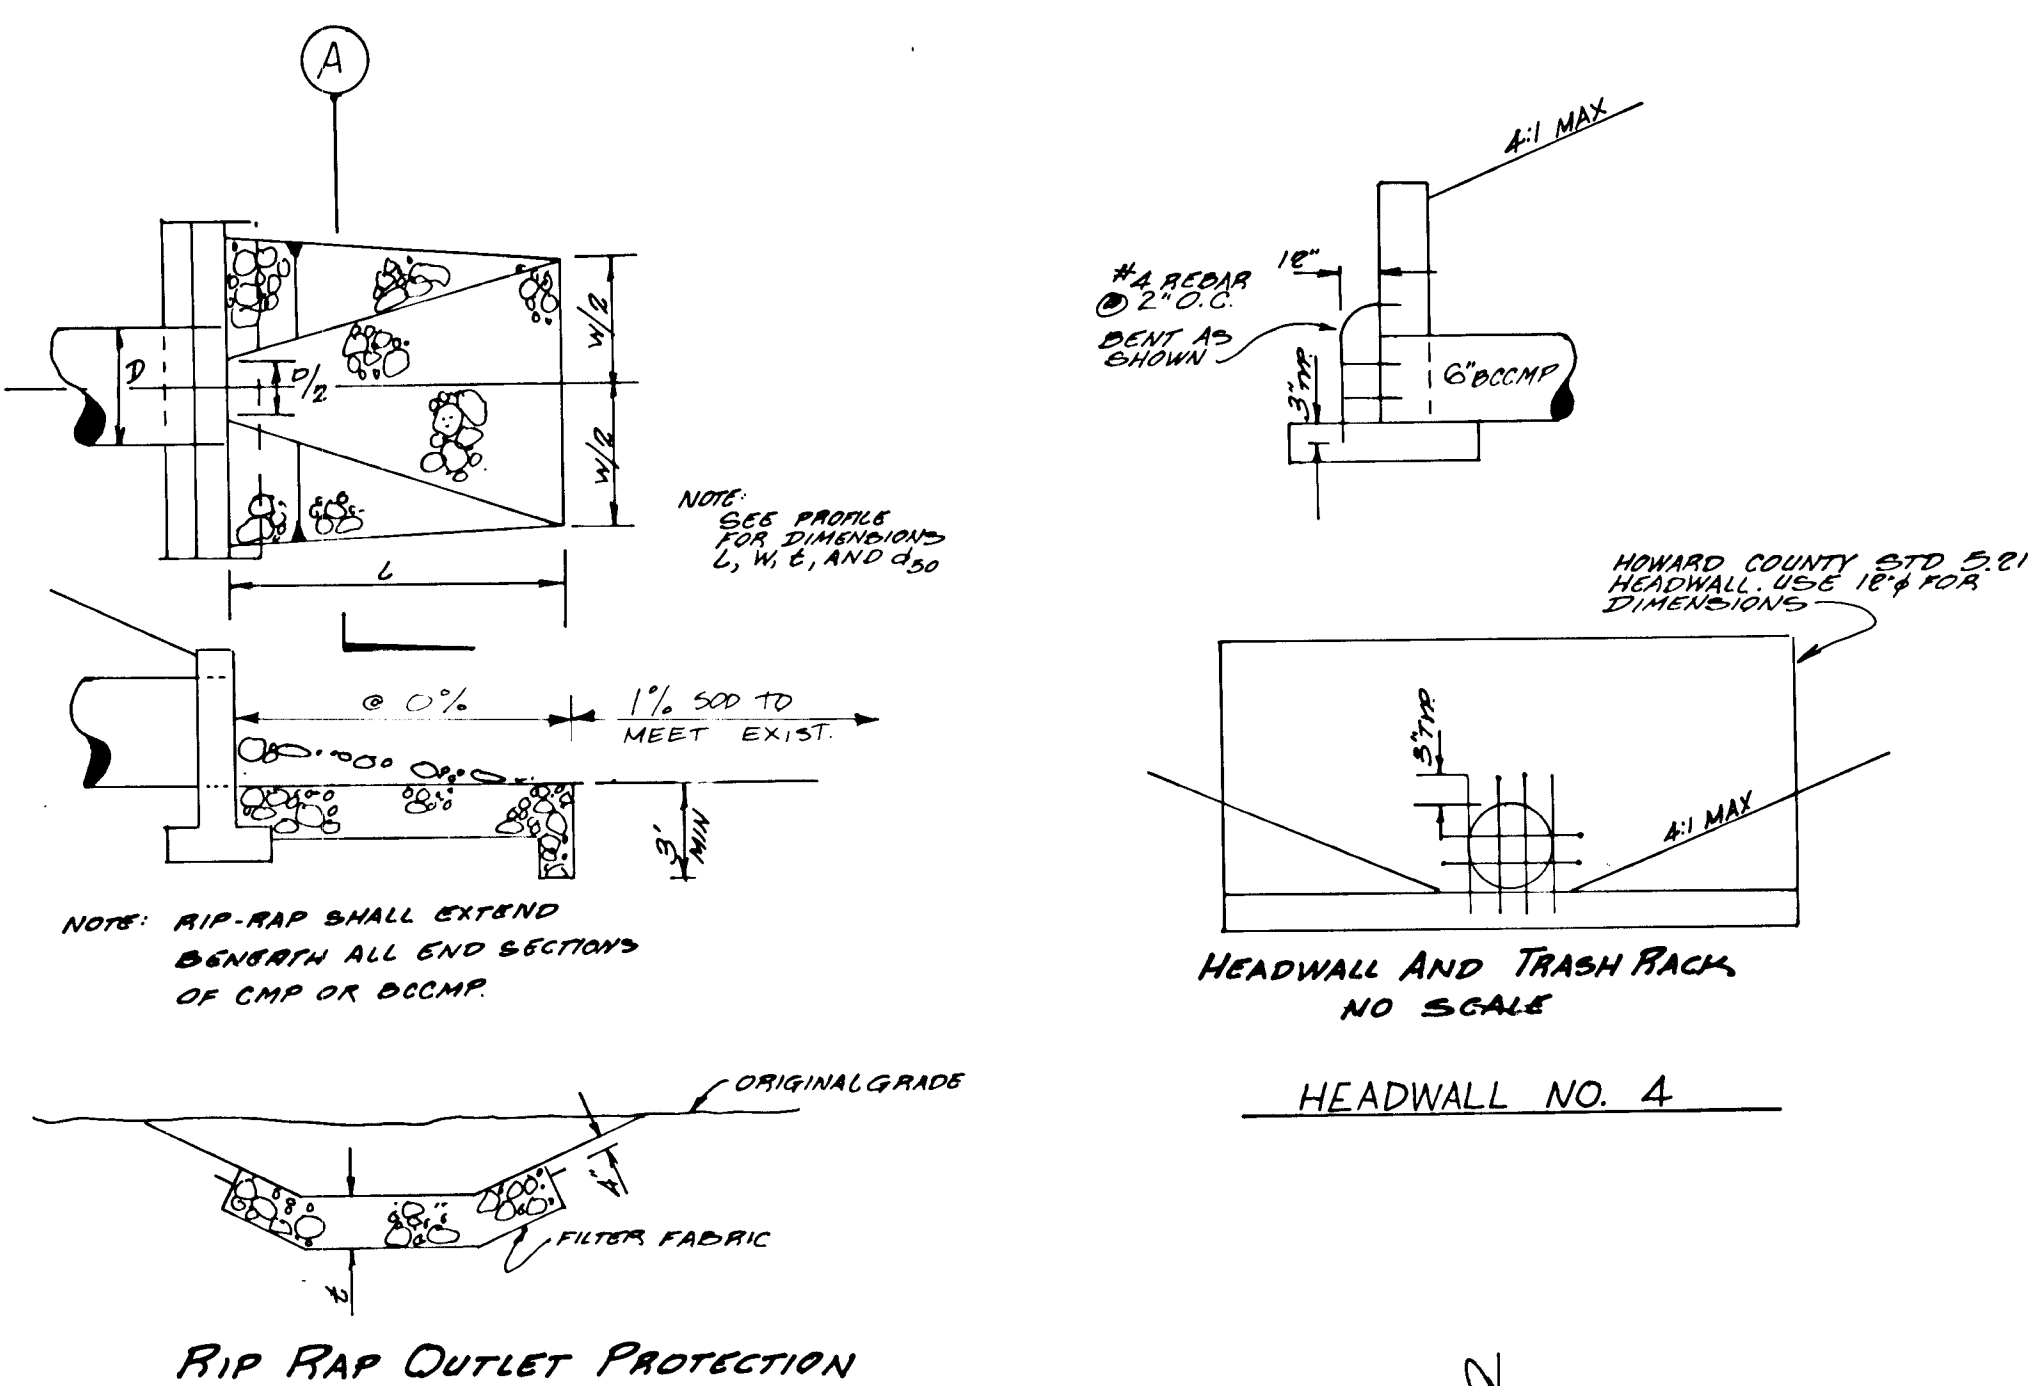 A
D
D/2
W/2
W/2
L
NOTE:
SEE PROFILE
FOR DIMENSIONS
L, W, t, AND d50
@ 0%
1% SOD TO
MEET EXIST.
3'
MIN
NOTE: RIP-RAP SHALL EXTEND
BENEATH ALL END SECTIONS
OF CMP OR BCCMP.
ORIGINAL GRADE
4"
FILTER FABRIC
t
RIP RAP OUTLET PROTECTION
4:1 MAX
12"
#4 REBAR
@ 2" O.C.
BENT AS
SHOWN
3" TYP.
6" BCCMP
HOWARD COUNTY STD 5.21
HEADWALL. USE 12"φ FOR
DIMENSIONS
3" TYP.
4:1 MAX
HEADWALL AND TRASH RACK
NO SCALE
HEADWALL NO. 4